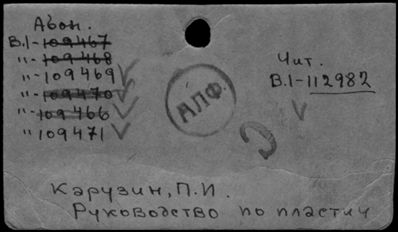 Абон.
В.1-109467
"-109468
"-109469
"-109470
"-109466
"109471
Чит.
В.1-112982
АЛФ.
Карузин, П.И.
Руководство по пластич